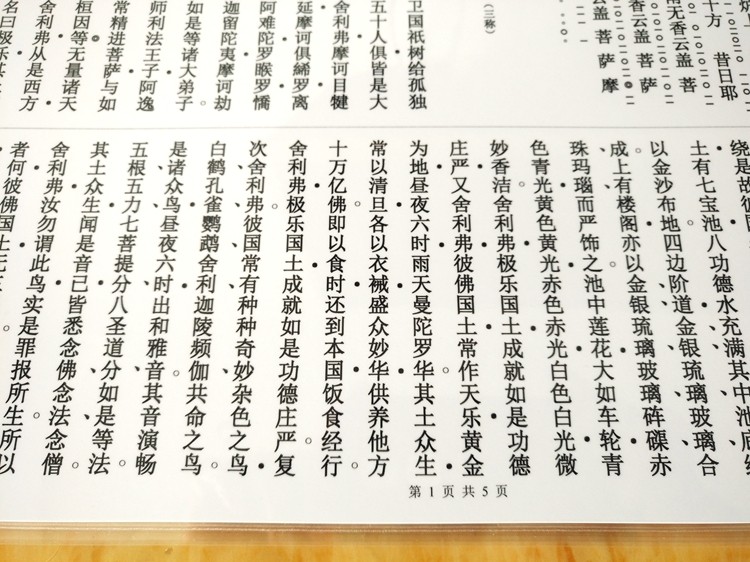 十方 昔日耶
南无香云盖菩
香云盖菩萨
盖菩萨摩
(三称)
卫国祇树给孤独
五十人俱皆是大
舍利弗摩诃目犍
延摩诃俱絺罗离
阿难陀罗睺罗憍
迦留陀夷摩诃劫
如是等诸大弟子。
师利法王子阿逸
常精进菩萨与如
桓因等无量诸天
舍利弗从是西方
名曰极乐其
绕是故彼
土有七宝池八功德水充满其中池底
以金沙布地四边阶道金、银、琉璃、玻璃合
成。上有楼阁亦以金、银、琉璃、玻璃、砗磲、赤
珠、玛瑙而严饰之。池中莲花大如车轮青
色青光黄色黄光赤色赤光白色白光微
妙香洁舍利弗极乐国土成就如是功德
庄严。又舍利弗彼佛国土常作天乐黄金
为地昼夜六时雨天曼陀罗华。其土众生
常以清旦各以衣裓盛众妙华供养他方
十万亿佛即以食时还到本国饭食经行。
舍利弗极乐国土成就如是功德庄严。复
次舍利弗彼国常有种种奇妙杂色之鸟
白鹤、孔雀、鹦鹉、舍利、迦陵频伽、共命之鸟。
是诸众鸟昼夜六时出和雅音。其音演畅
五根、五力、七菩提分、八圣道分、如是等法。
其土众生闻是音已皆悉念佛、念法、念僧。
舍利弗汝勿谓此鸟实是罪报所生所以
者何彼佛国土无三
第 1 页 共 5 页